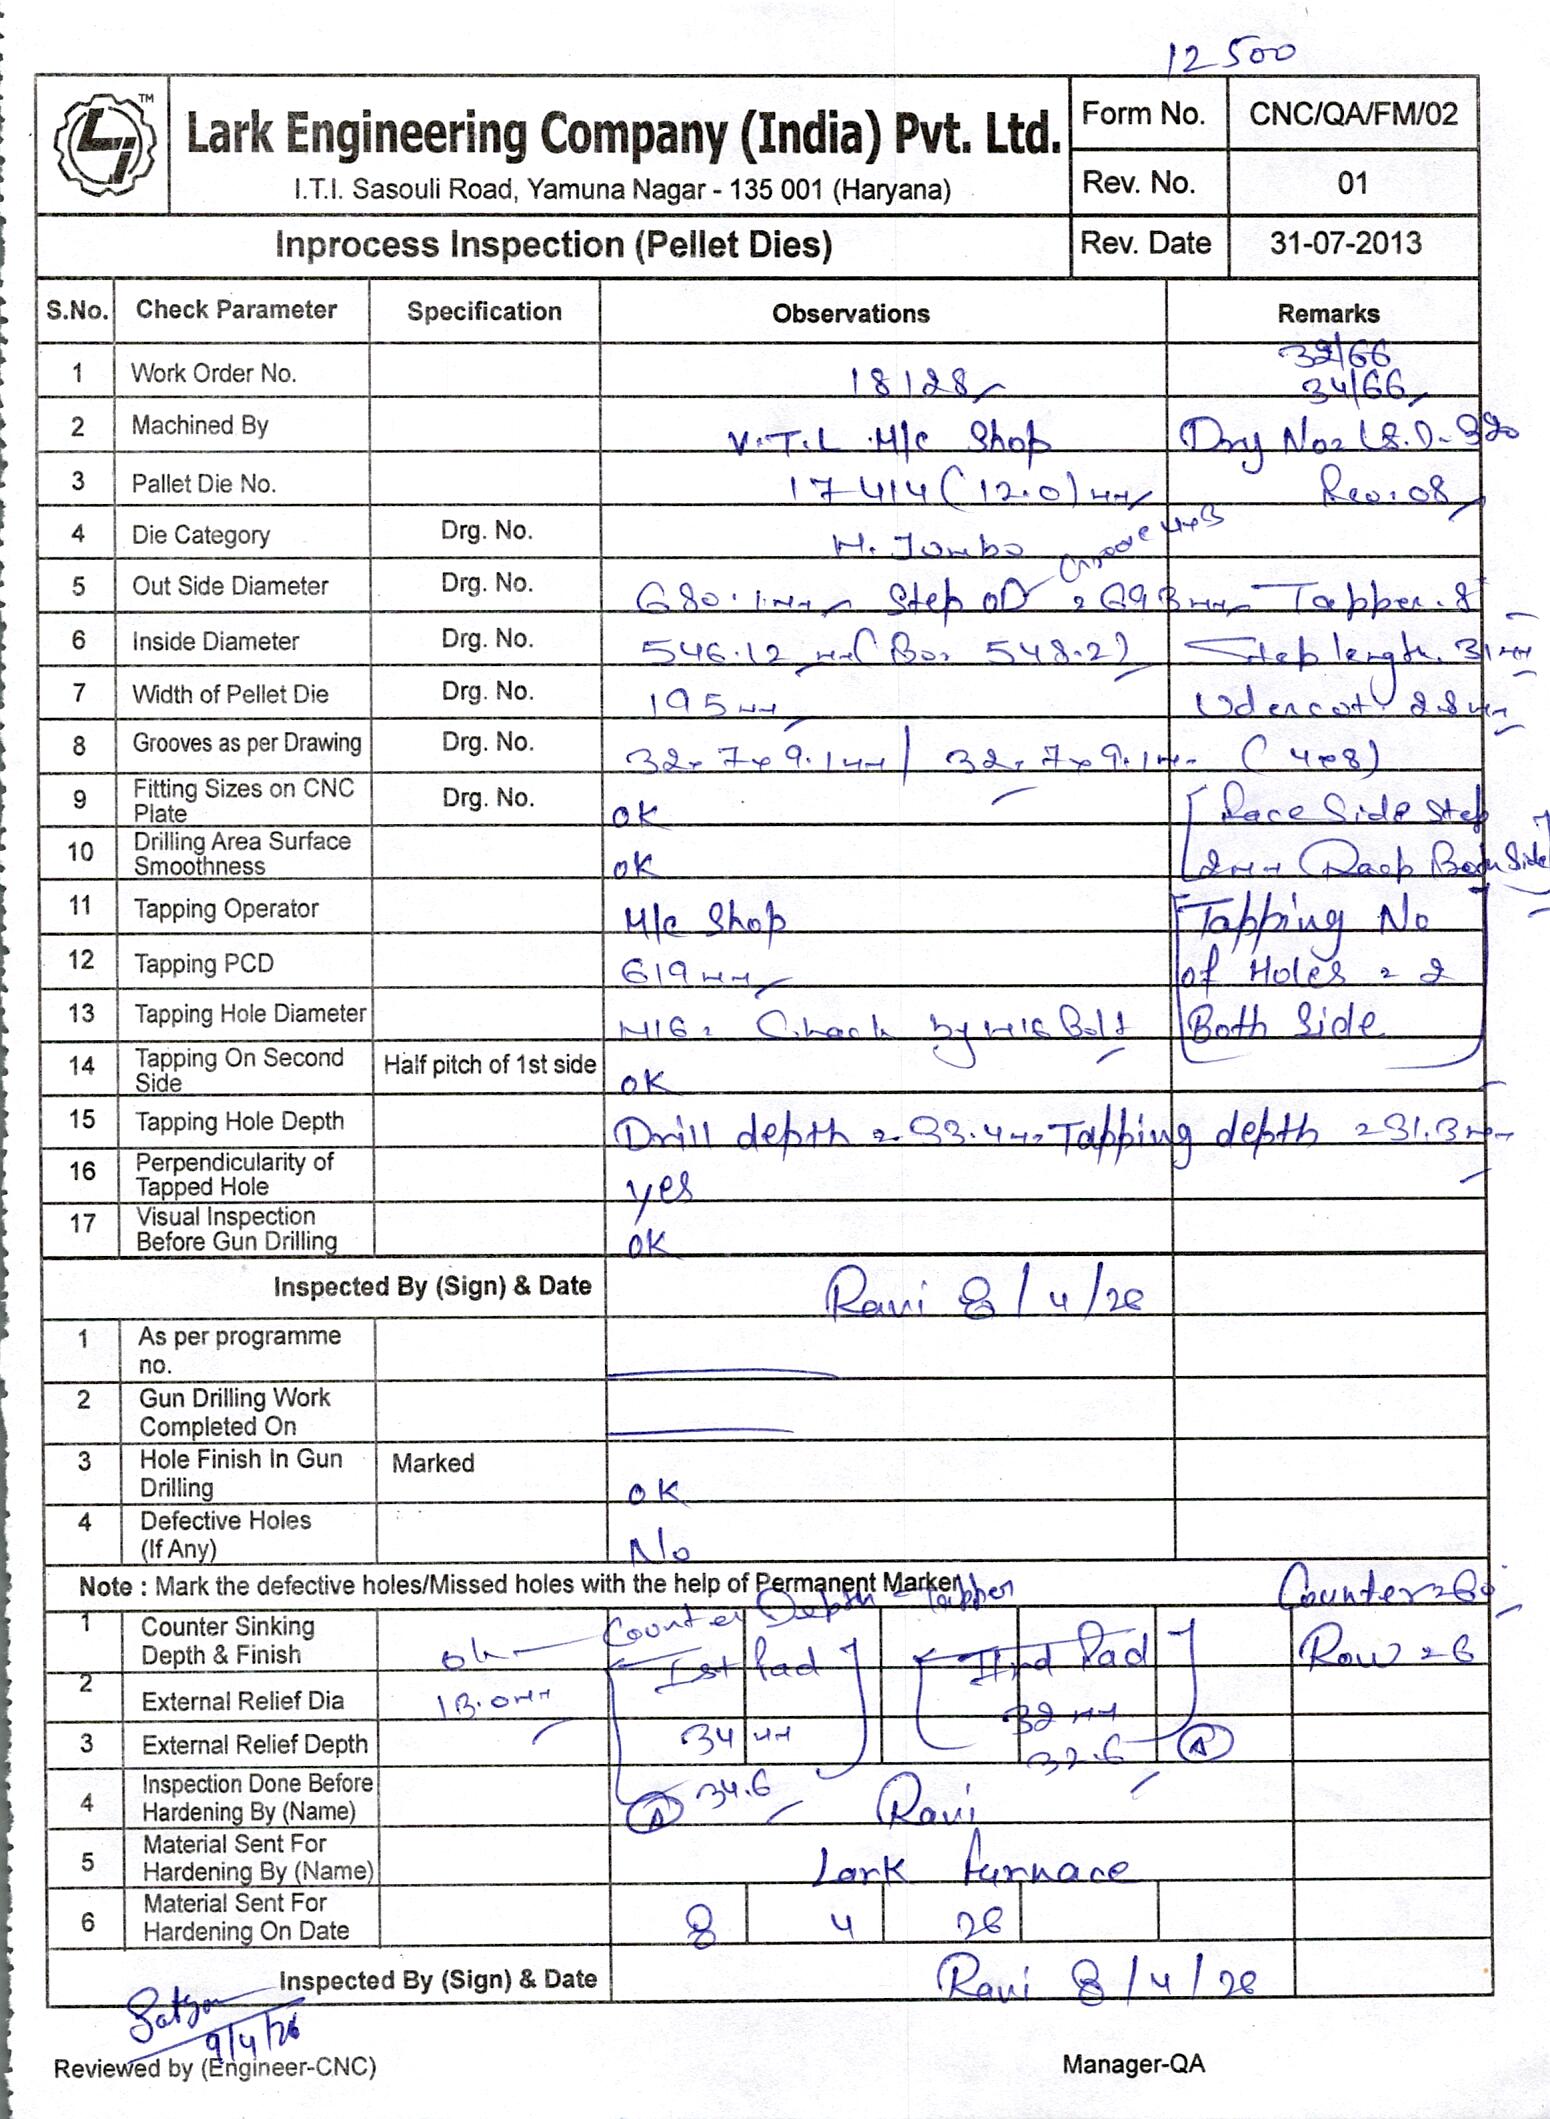 12500
LJ TM
Lark Engineering Company (India) Pvt. Ltd.
I.T.I. Sasouli Road, Yamuna Nagar - 135 001 (Haryana)
Form No. CNC/QA/FM/02
Rev. No. 01
Inprocess Inspection (Pellet Dies) Rev. Date 31-07-2013
S.No. Check Parameter Specification Observations Remarks
32/66
1 Work Order No. 18128 34/66
2 Machined By V.T.L M/c Shop
3 Pallet Die No. 17414 (12.0) mm Rev: 08
4 Die Category Drg. No. M. Jumbo Groove 4x3
5 Out Side Diameter Drg. No. 680.1mm Step OD = 693mm Tapper. 8°
6 Inside Diameter Drg. No. 546.12 mm (Bo= 548.2) Step length. 31mm
7 Width of Pellet Die Drg. No. 195mm Udercot. 28mm
8 Grooves as per Drawing Drg. No. 32x7x9.1mm / 32x7x9.1mm (4x8)
9 Fitting Sizes on CNC Plate Drg. No. OK Race Side Step
10 Drilling Area Surface Smoothness OK 2mm Side
11 Tapping Operator M/c Shop Tapping No
12 Tapping PCD 619mm of Holes = 2
13 Tapping Hole Diameter M16 = Chack by M16 Bolt Both Side
14 Tapping On Second Side Half pitch of 1st side OK
15 Tapping Hole Depth Drill depth = 33.4mm Tapping depth = 31.3mm
16 Perpendicularity of Tapped Hole yes
17 Visual Inspection Before Gun Drilling OK
Inspected By (Sign) & Date Ravi 8/4/26
1 As per programme no.
2 Gun Drilling Work Completed On
3 Hole Finish In Gun Drilling Marked OK
4 Defective Holes (If Any) No
Note : Mark the defective holes/Missed holes with the help of Permanent Marker
Counter Depth - Tapper Counter = 60°
1 Counter Sinking Depth & Finish ok Ist Pad IInd Pad Row = 6
2 External Relief Dia 13.0mm 32 mm
3 External Relief Depth 34 mm 32.6 A
4 Inspection Done Before Hardening By (Name) A 34.6 Ravi
5 Material Sent For Hardening By (Name) Lark furnace
6 Material Sent For Hardening On Date 8 4 26
Inspected By (Sign) & Date Ravi 8/4/26
9/4/26
Reviewed by (Engineer-CNC) Manager-QA